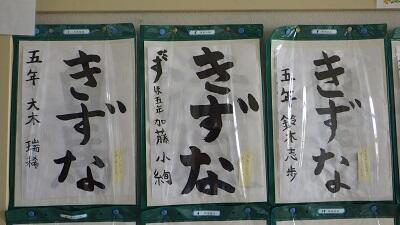 きずな
五年 大木 瑞稀
きずな
五年 加藤 小絢
きずな
五年 鈴木志歩